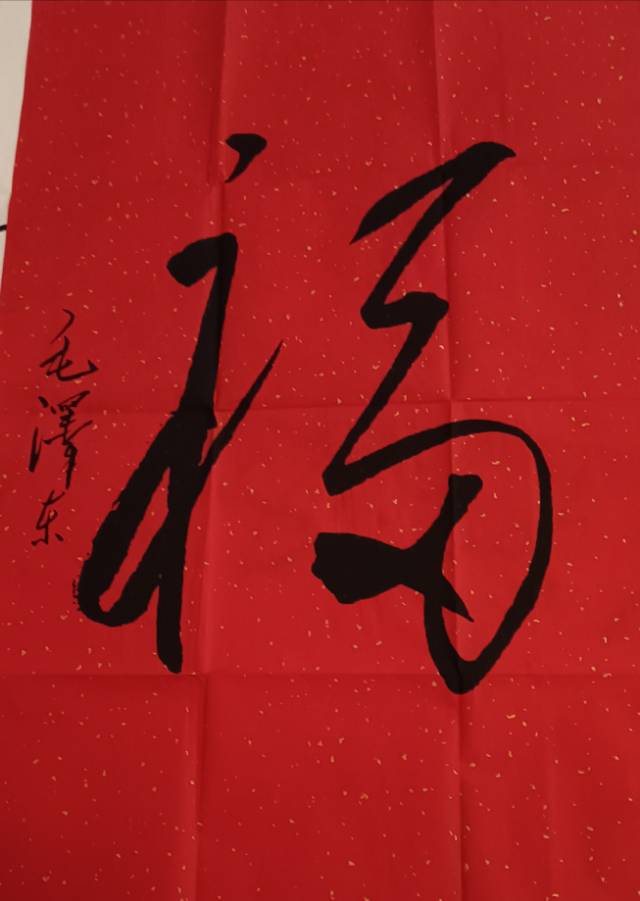 福
毛澤东